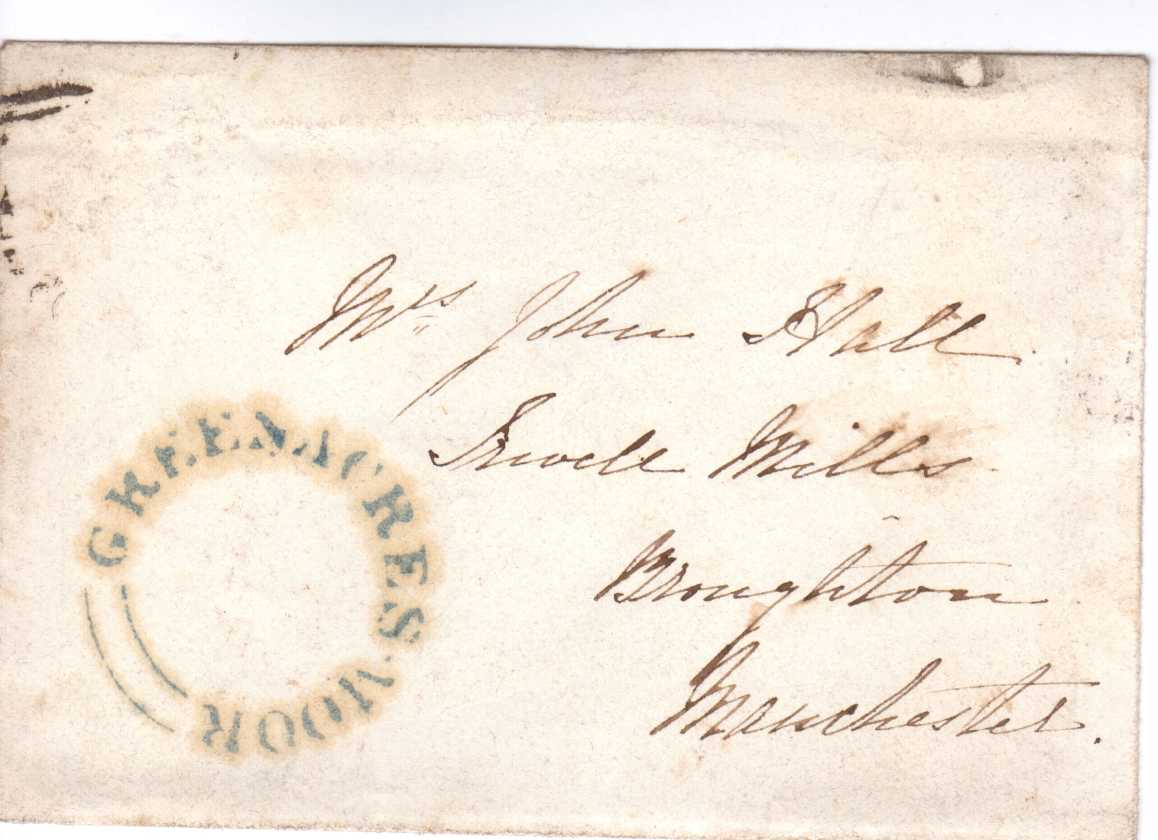 Mrs John Hall
Irwell Mills
Broughton
Manchester.
GREENACRES MOOR